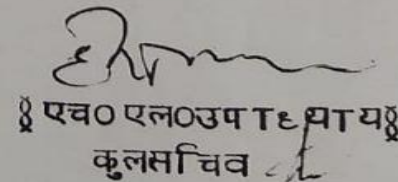 ॰एच० एल०उपाध्याय॰
कुलसचिव